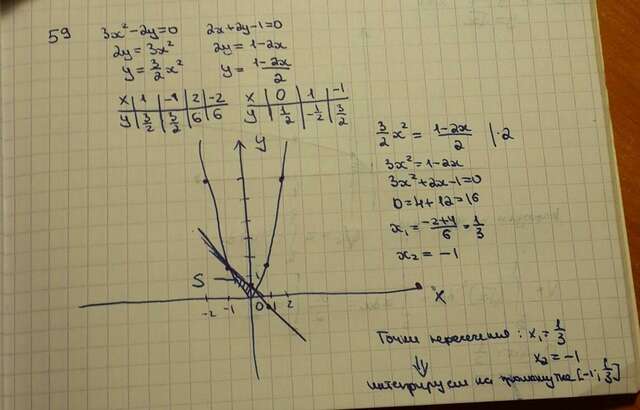 59
3x²-2y=0 2x+2y-1=0
2y=3x² 2y=1-2x
y=3/2x² y=1-2x/2
x 1 -1 2 -2
y 3/2 3/2 6 6
x 0 1 -1
y 1/2 -1/2 3/2
3/2x²=1-2x/2 |·2
3x²=1-2x
3x²+2x-1=0
D=4+12=16
x₁=-2+4/6=1/3
x₂=-1
y
S
-2 -1 0 1 2
x
Точки пересечения: x₁=1/3
x₂=-1
⇓
интегрируем на промежутке [-1;1/3]